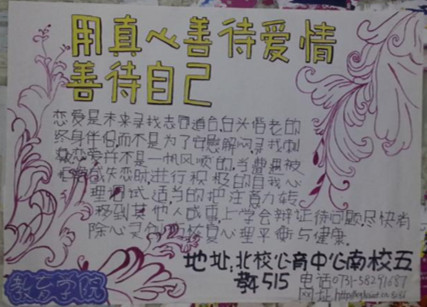 用真心善待爱情
善待自己
恋爱是未来寻找志同道合,白头偕老的
终身伴侣,而不是为了安慰解闷寻找刺
激,恋爱并不是一帆风顺的,当遭遇被
失恋时,进行积极的自我心
理调试,适当的把注意力转
移到其他人或事上,学会辩证待问题,尽快消
除心灵,恢复心理平衡与健康.
地址:北校心育中心南校五
教515
电话0731-58291687
网址:http
教育学院